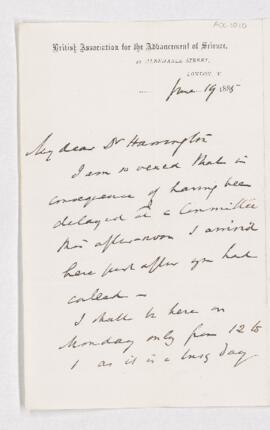 ACC-1010
British Association for the Advancement of Science,
22 ALBEMARLE STREET,
LONDON, W.
June 19 1885
My dear Dr Harrington
I am so vexed that in
consequence of having been
delayed at a Committee
this afternoon I arrived
here just after you had
called –
I shall be here on
Monday only from 12 to
1 as it is a busy day